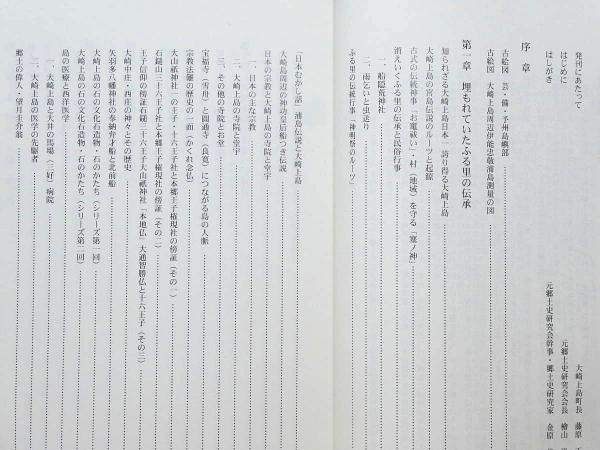 発刊にあたって　大崎上島町長　藤原
はじめに　元郷土史研究会会長　檜山
はしがき　元郷土史研究会幹事・郷土史研究家　金原
序章
古絵図　芸・備・予州島嶼部
古絵図　大崎上島周辺伊能忠敬浦島測量の図
第一章　埋もれていたふる里の伝承
知られざる大崎上島日本一　誇り得る大崎上島
大崎上島の宮島伝説のルーツと起源
古式の伝統神事「お竈祓い」・村（地域）を守る「塞ノ神」
消えいくふる里の伝承と民俗行事
一、船隠荒神社
二、雨乞いと虫送り
ふる里の伝統行事「神明祭のルーツ」
「日本むかし話」浦島伝説と大崎上島
大崎上島周辺の神功皇后船つき伝説
日本の宗教と大崎上島の寺院と堂宇
一、日本の主な宗教
二、大崎上島の寺院と堂宇
三、その他の寺院とお堂
宝福寺（雪舟）と圓通寺（良寛）につながる島の人脈
宗教法難の歴史の一面（かくれ念仏）
大山祇神社一の王子・十六王子社と本郷王子権現社の傍証（その一）
石鎚山三十六王子社と本郷王子権現社の傍証（その二）
王子信仰の傍証石鎚三十六王子大山祇神社「本地仏」大通智勝仏と十六王子（その三）
大崎中庄・西庄の神々とその歴史
矢弓多八幡神社の奉納弁才船と北前船
大崎上島の石の文化石造物・石のかたち（シリーズ第一回）
大崎上島の石の文化石造物・石のかたち（シリーズ第二回）
島の医療と西洋医学
一、大崎上島と大井の馬場（三好）病院
二、大崎上島の医学の先駆者
郷土の偉人・望月圭介翁